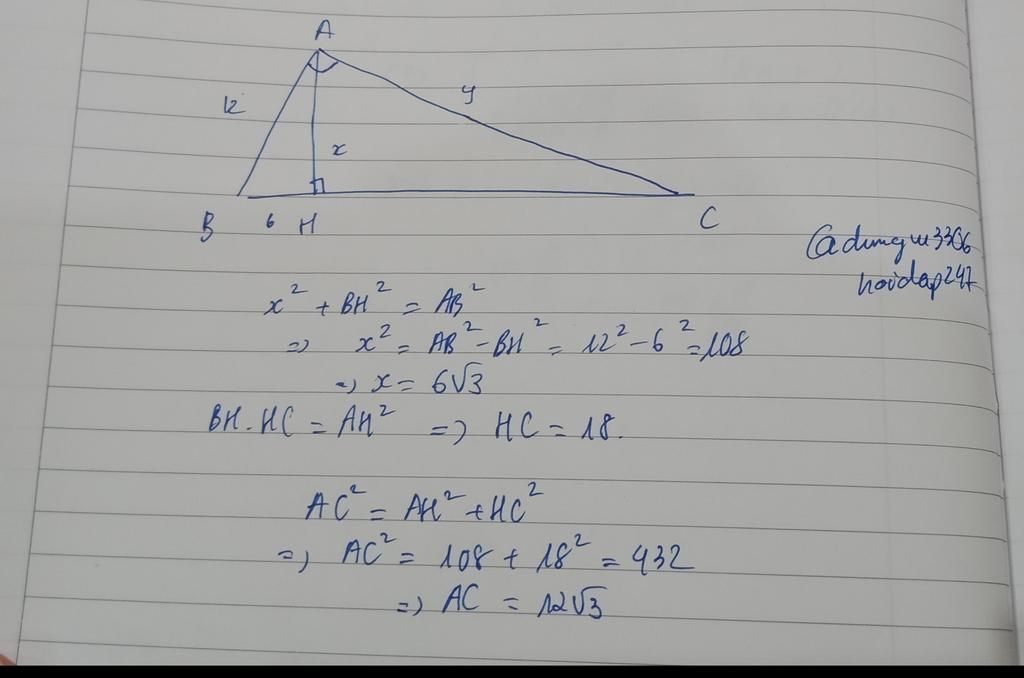 A
12
y
x
B 6 H C
@dungw3306
hoidap247
x² + BH² = AB²
=> x² = AB² - BH² = 12² - 6² = 108
=> x = 6√3
BH.HC = AH² => HC = 18.
AC² = AH² + HC²
=> AC² = 108 + 18² = 432
=> AC = 12√3